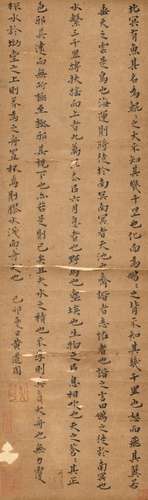 北冥有魚其名為鯤〻之大不知其幾千里也化而為鵬〻之背不知其幾千里也其翼若
垂天之雲是鳥也海運則將徙於南冥南冥者天池也齊諧者志怪者也諧之言曰鵬之徙於南冥也
水擊三千里摶扶搖而上者九萬里去以六月息者也野馬也塵埃也生物之以息相吹也天之蒼〻其正
色邪其遠而無所至極邪其視下也亦若是則已矣且夫水之積也不厚則負大舟也無力覆
杯水於坳堂之上則芥為之舟置杯焉則膠水淺而舟大也 己卯夏日黃道周